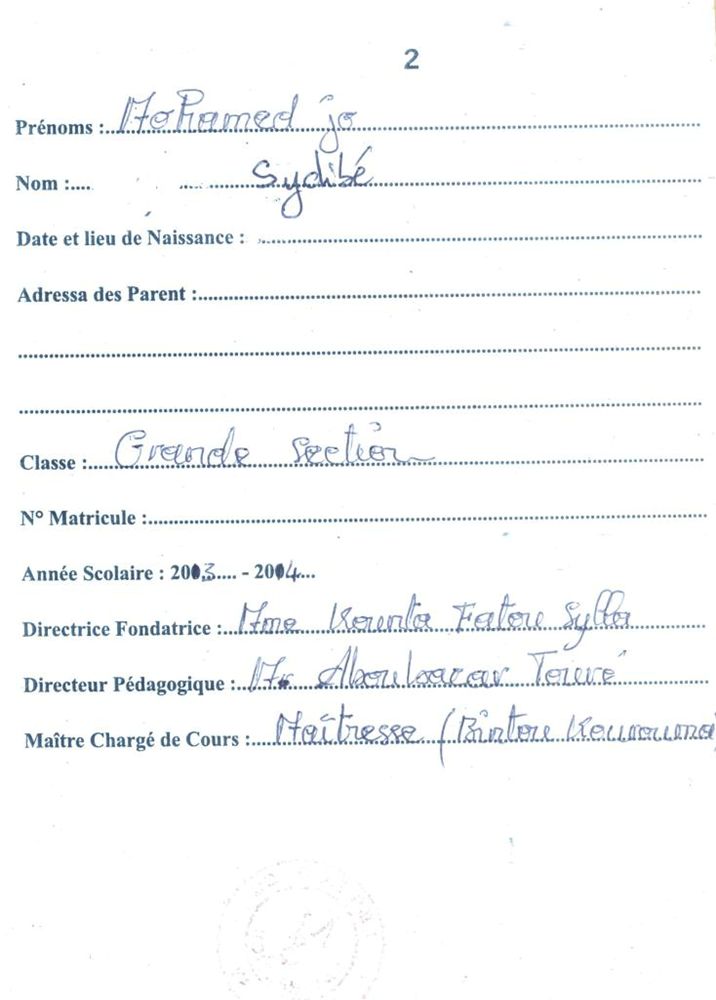 2
Prénoms : Mohamed jo
Nom : Sydibé
Date et lieu de Naissance :
Adressa des Parent :
Classe : Grande section
N° Matricule :
Année Scolaire : 2003 - 2004
Directrice Fondatrice : Mme Kounta Fatou Sylla
Directeur Pédagogique : Mr Aboubacar Touré
Maître Chargé de Cours : Maîtresse (Bintou Kourouma